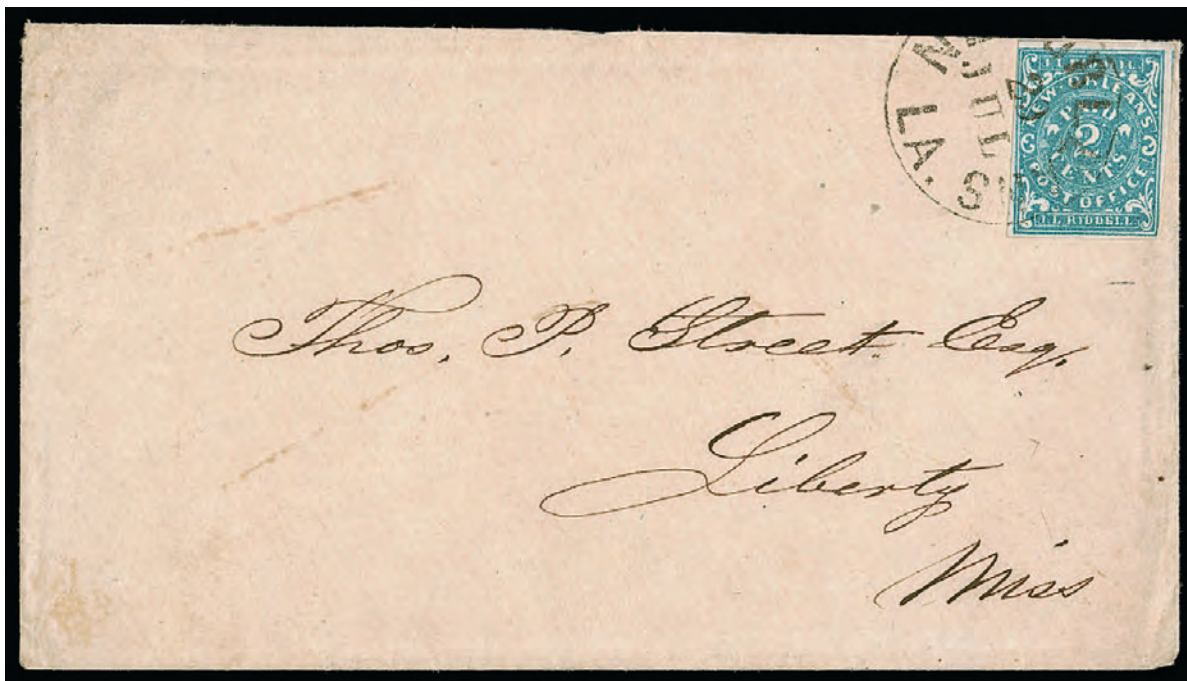 N
LA.
JUL
NEW-ORLEANS
PAID
2
CENTS
POST OFFICE
J.L. RIDDELL
Thos. P. Street Esq.
Liberty
Miss